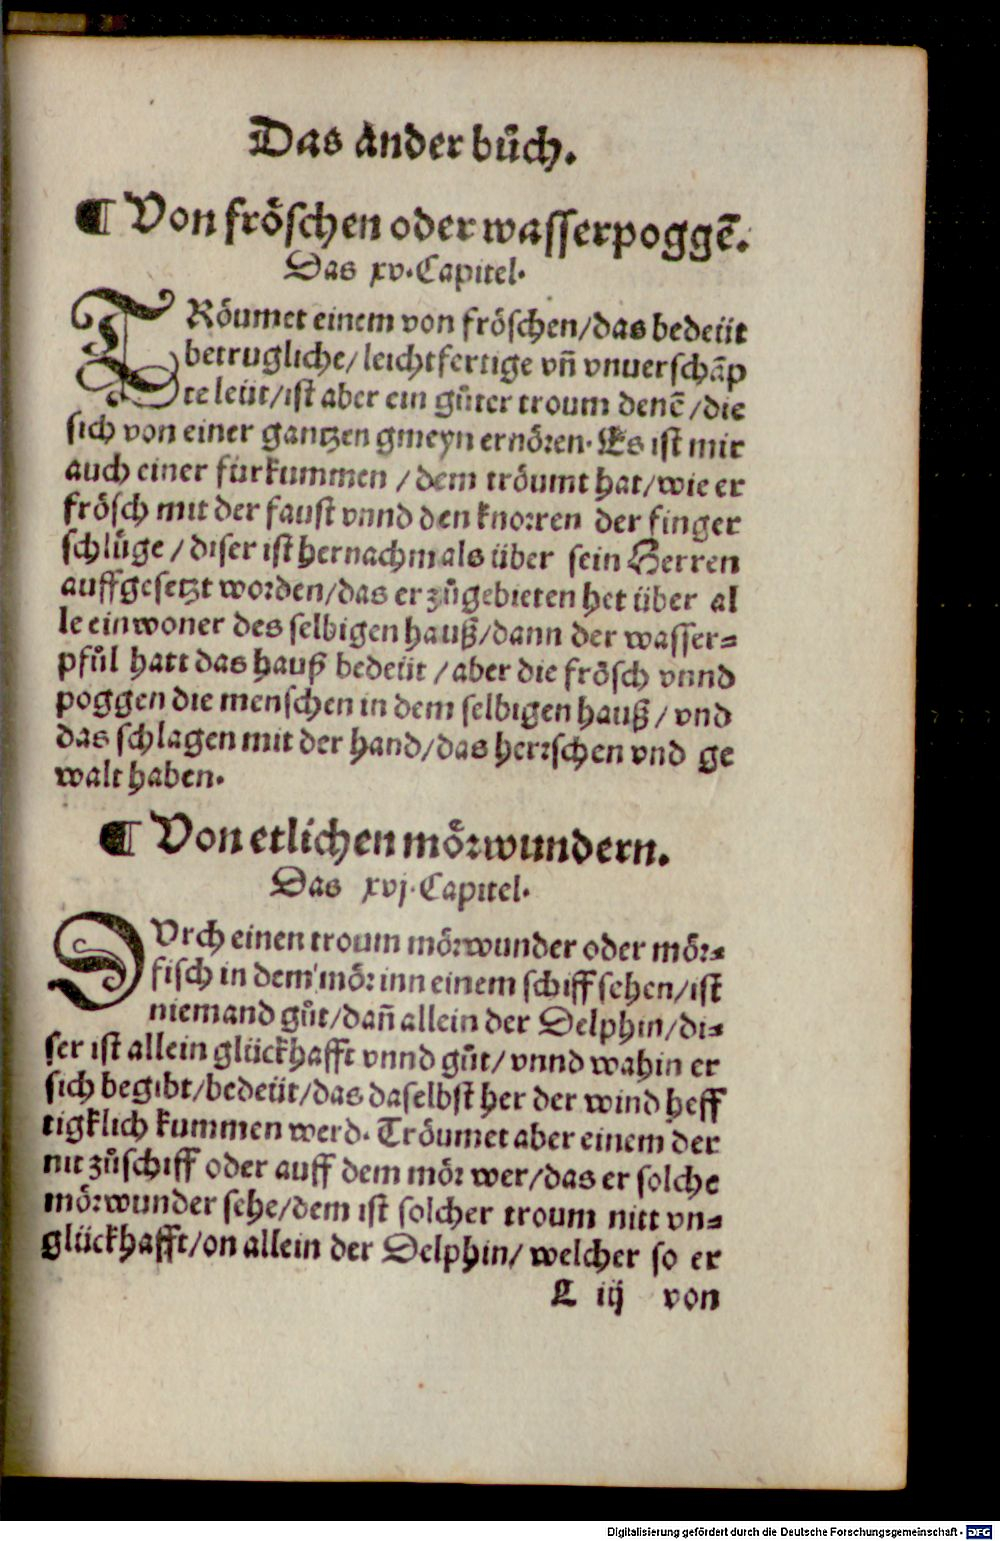 Das ander bůch.
¶ Von fröschen oder wasserpoggē.
Das xv. Capitel.
TRöumet einem von fröschen/das bedeüt
betrugliche/leichtfertige vñ vnuerschāp
te leüt/ist aber ein gůter troum denē/die
sich von einer gantzen gmeyn ernören. Es ist mir
auch einer fürkummen/dem tröumt hat/wie er
frösch mit der faust vnnd den knorren der finger
schlůge/diser ist hernachmals über sein Herren
auffgesetzt worden/das er zůgebieten het über al
le einwoner des selbigen hauß/dann der wasser-
pfůl hatt das hauß bedeüt/aber die frösch vnnd
poggen die menschen in dem selbigen hauß/vnd
das schlagen mit der hand/das herrschen vnd ge
walt haben.
¶ Von etlichen mörwundern.
Das xvj. Capitel.
DVrch einen troum mörwunder oder mör-
fisch in dem mör inn einem schiff sehen/ist
niemand gůt/dañ allein der Delphin/di-
ser ist allein glückhafft vnnd gůt/vnnd wahin er
sich begibt/bedeüt/das daselbst her der wind heff
tigklich kummen werd. Tröumet aber einem der
nit zůschiff oder auff dem mör wer/das er solche
mörwunder sehe/dem ist solcher troum nitt vn-
glückhafft/on allein der Delphin/welcher so er
L iij von
Digitalisierung gefördert durch die Deutsche Forschungsgemeinschaft - DFG